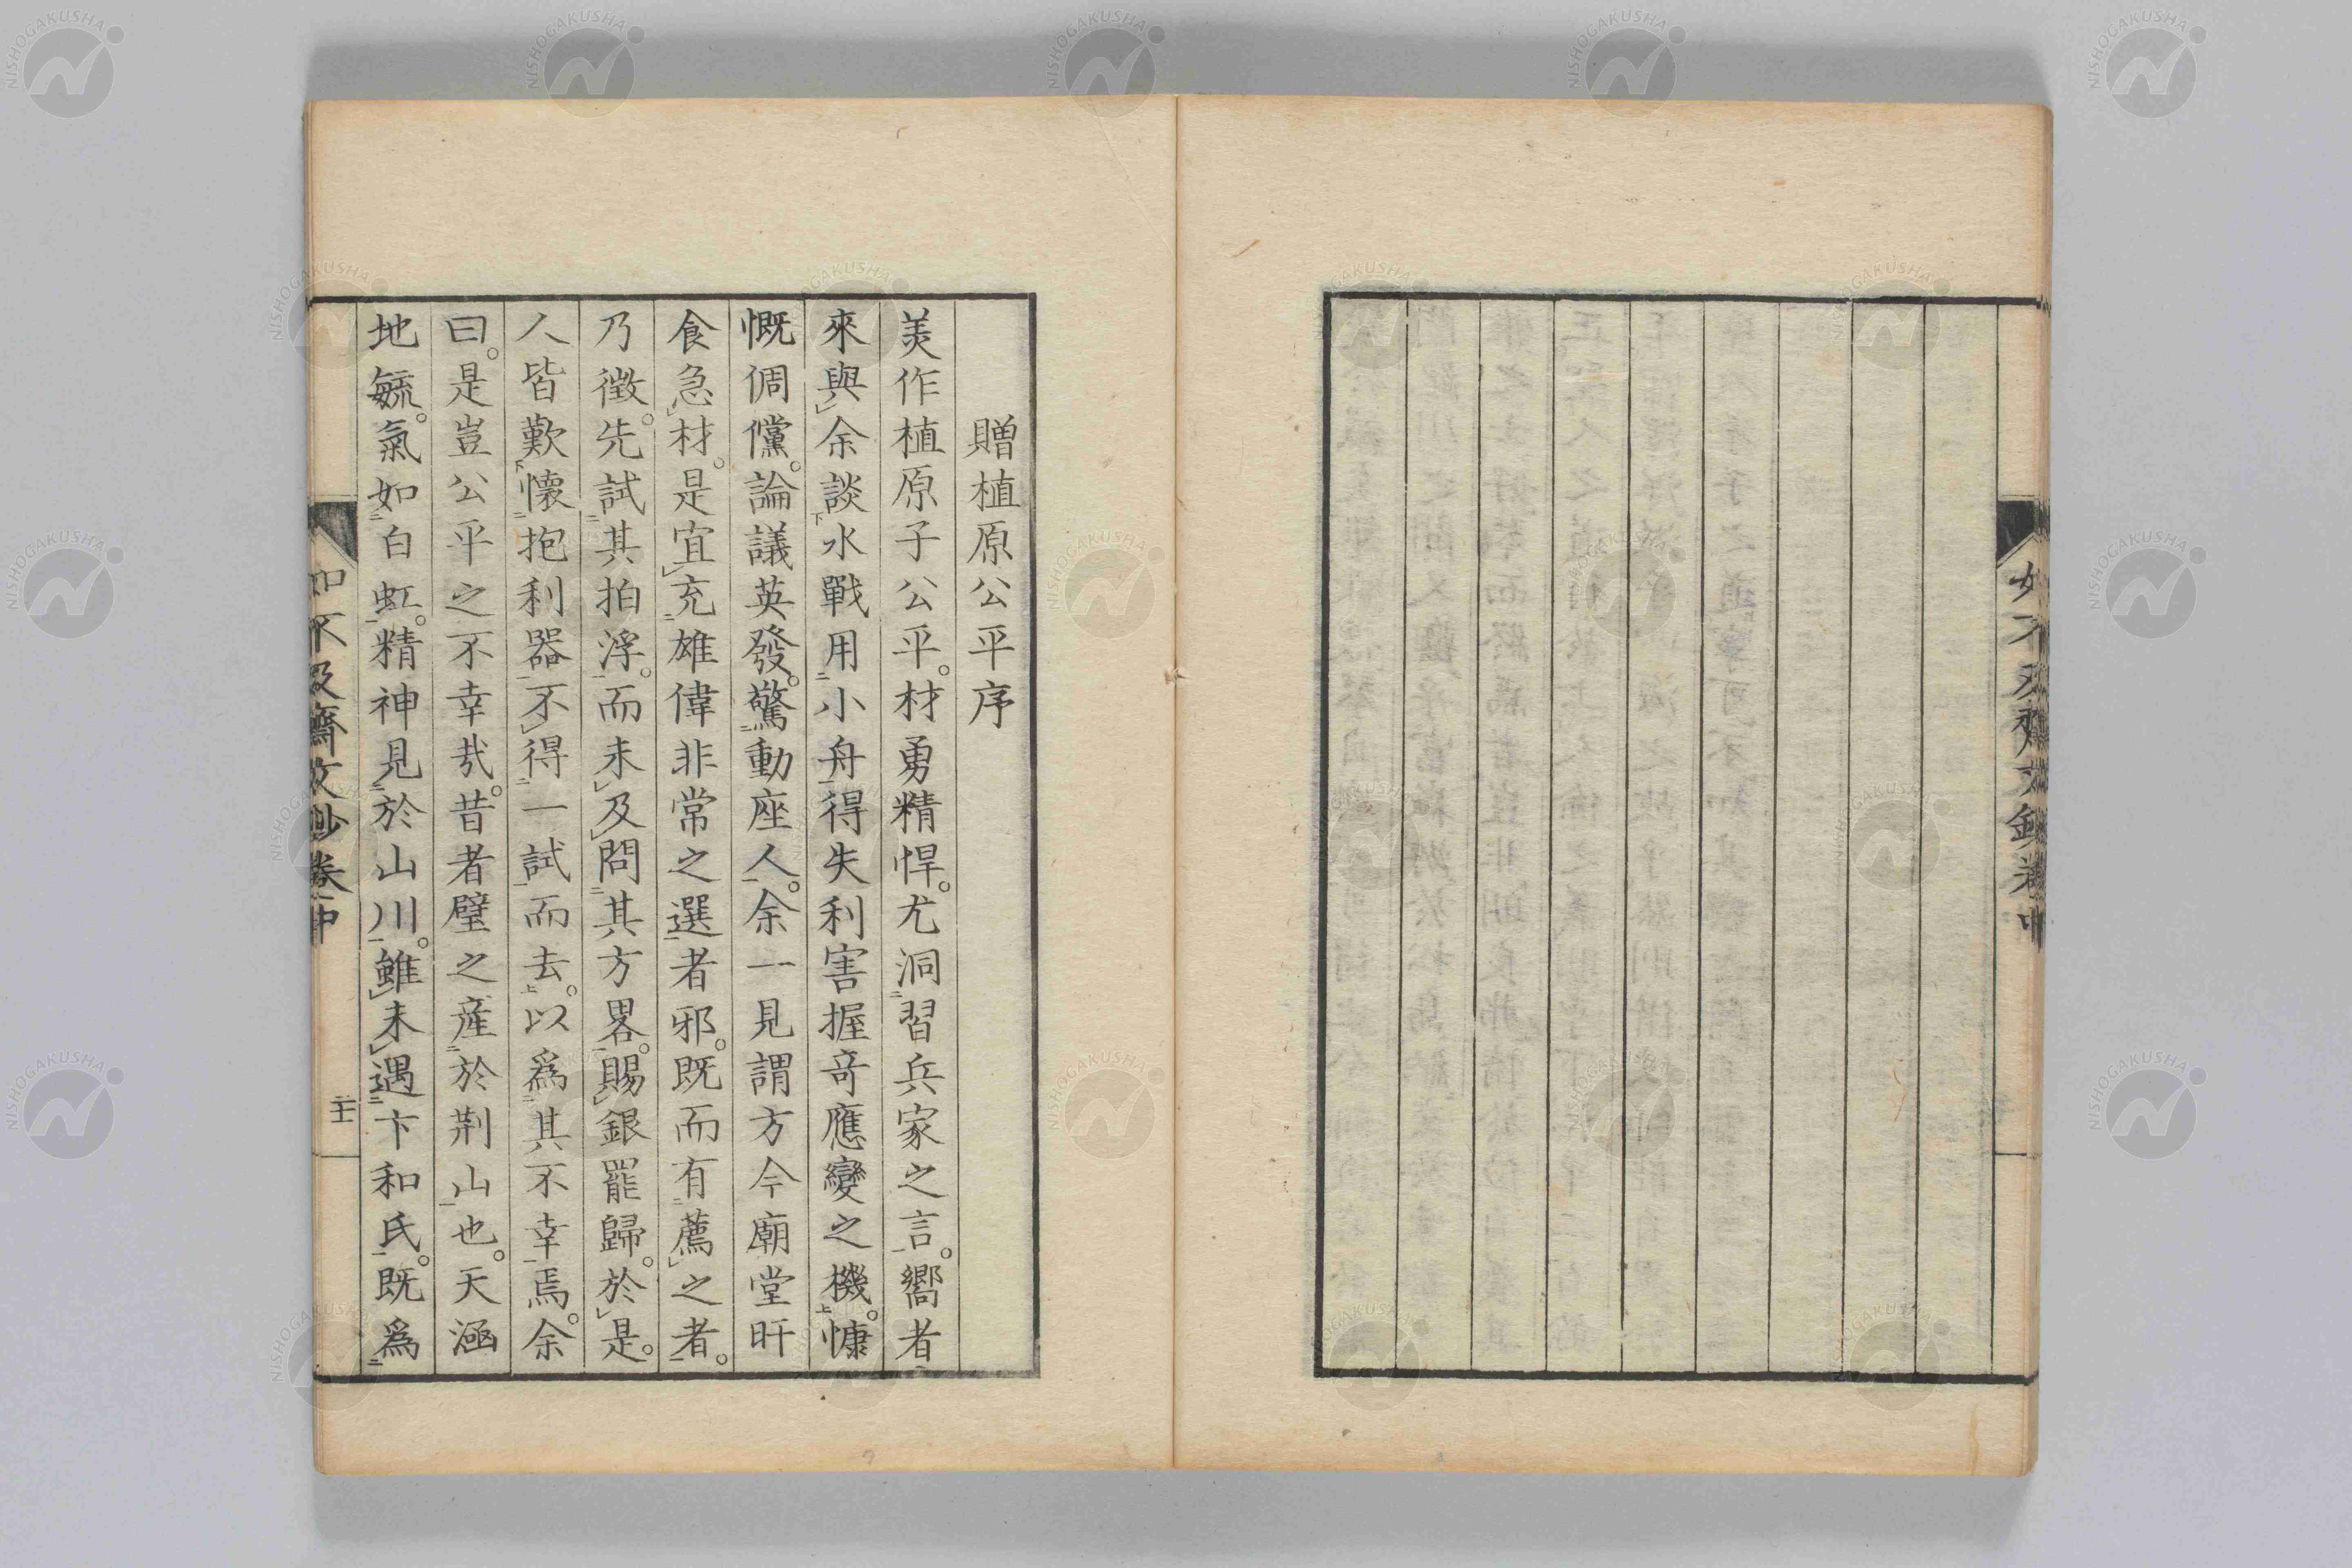 如不及齋文鈔卷中
贈植原公平序
美作植原子公平。材勇精悍。尤洞習兵家之言。嚮者
來與余談水戰用小舟得失利害握奇應變之機。慷
慨倜儻。論議英發。驚動座人。余一見謂方今廟堂旰
食急材。是宜充雄偉非常之選者邪。既而有薦之者。
乃徵。先試其拍浮。而未及問其方畧。賜銀罷歸。於是。
人皆歎懷抱利器不得一試而去。以爲其不幸焉。余
曰。是豈公平之不幸哉。昔者璧之産於荆山也。天涵
地毓。氣如白虹。精神見於山川。雖未遇卞和氏。既爲
如不及齋文鈔卷中
二十
NISHOGAKUSHA